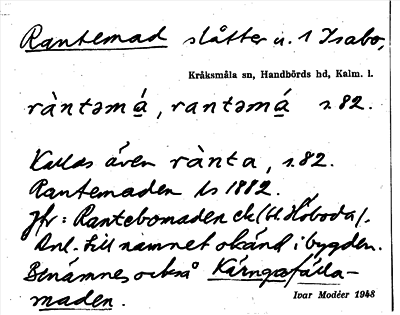 Rantemad slåtter u. 1 Isabo,
Kråksmåla sn, Handbörds hd, Kalm. l.
ràntəmá̱, rantəmá̱ s. 82.
Kallas även rànta, s. 82.
Rantemaden ls 1882.
Jfr: Rantebomaden ek (bl Höboda).
Anl. till namnet okänd i bygden.
Benämnes också Käringafälla-
maden.
Ivar Modéer 1948